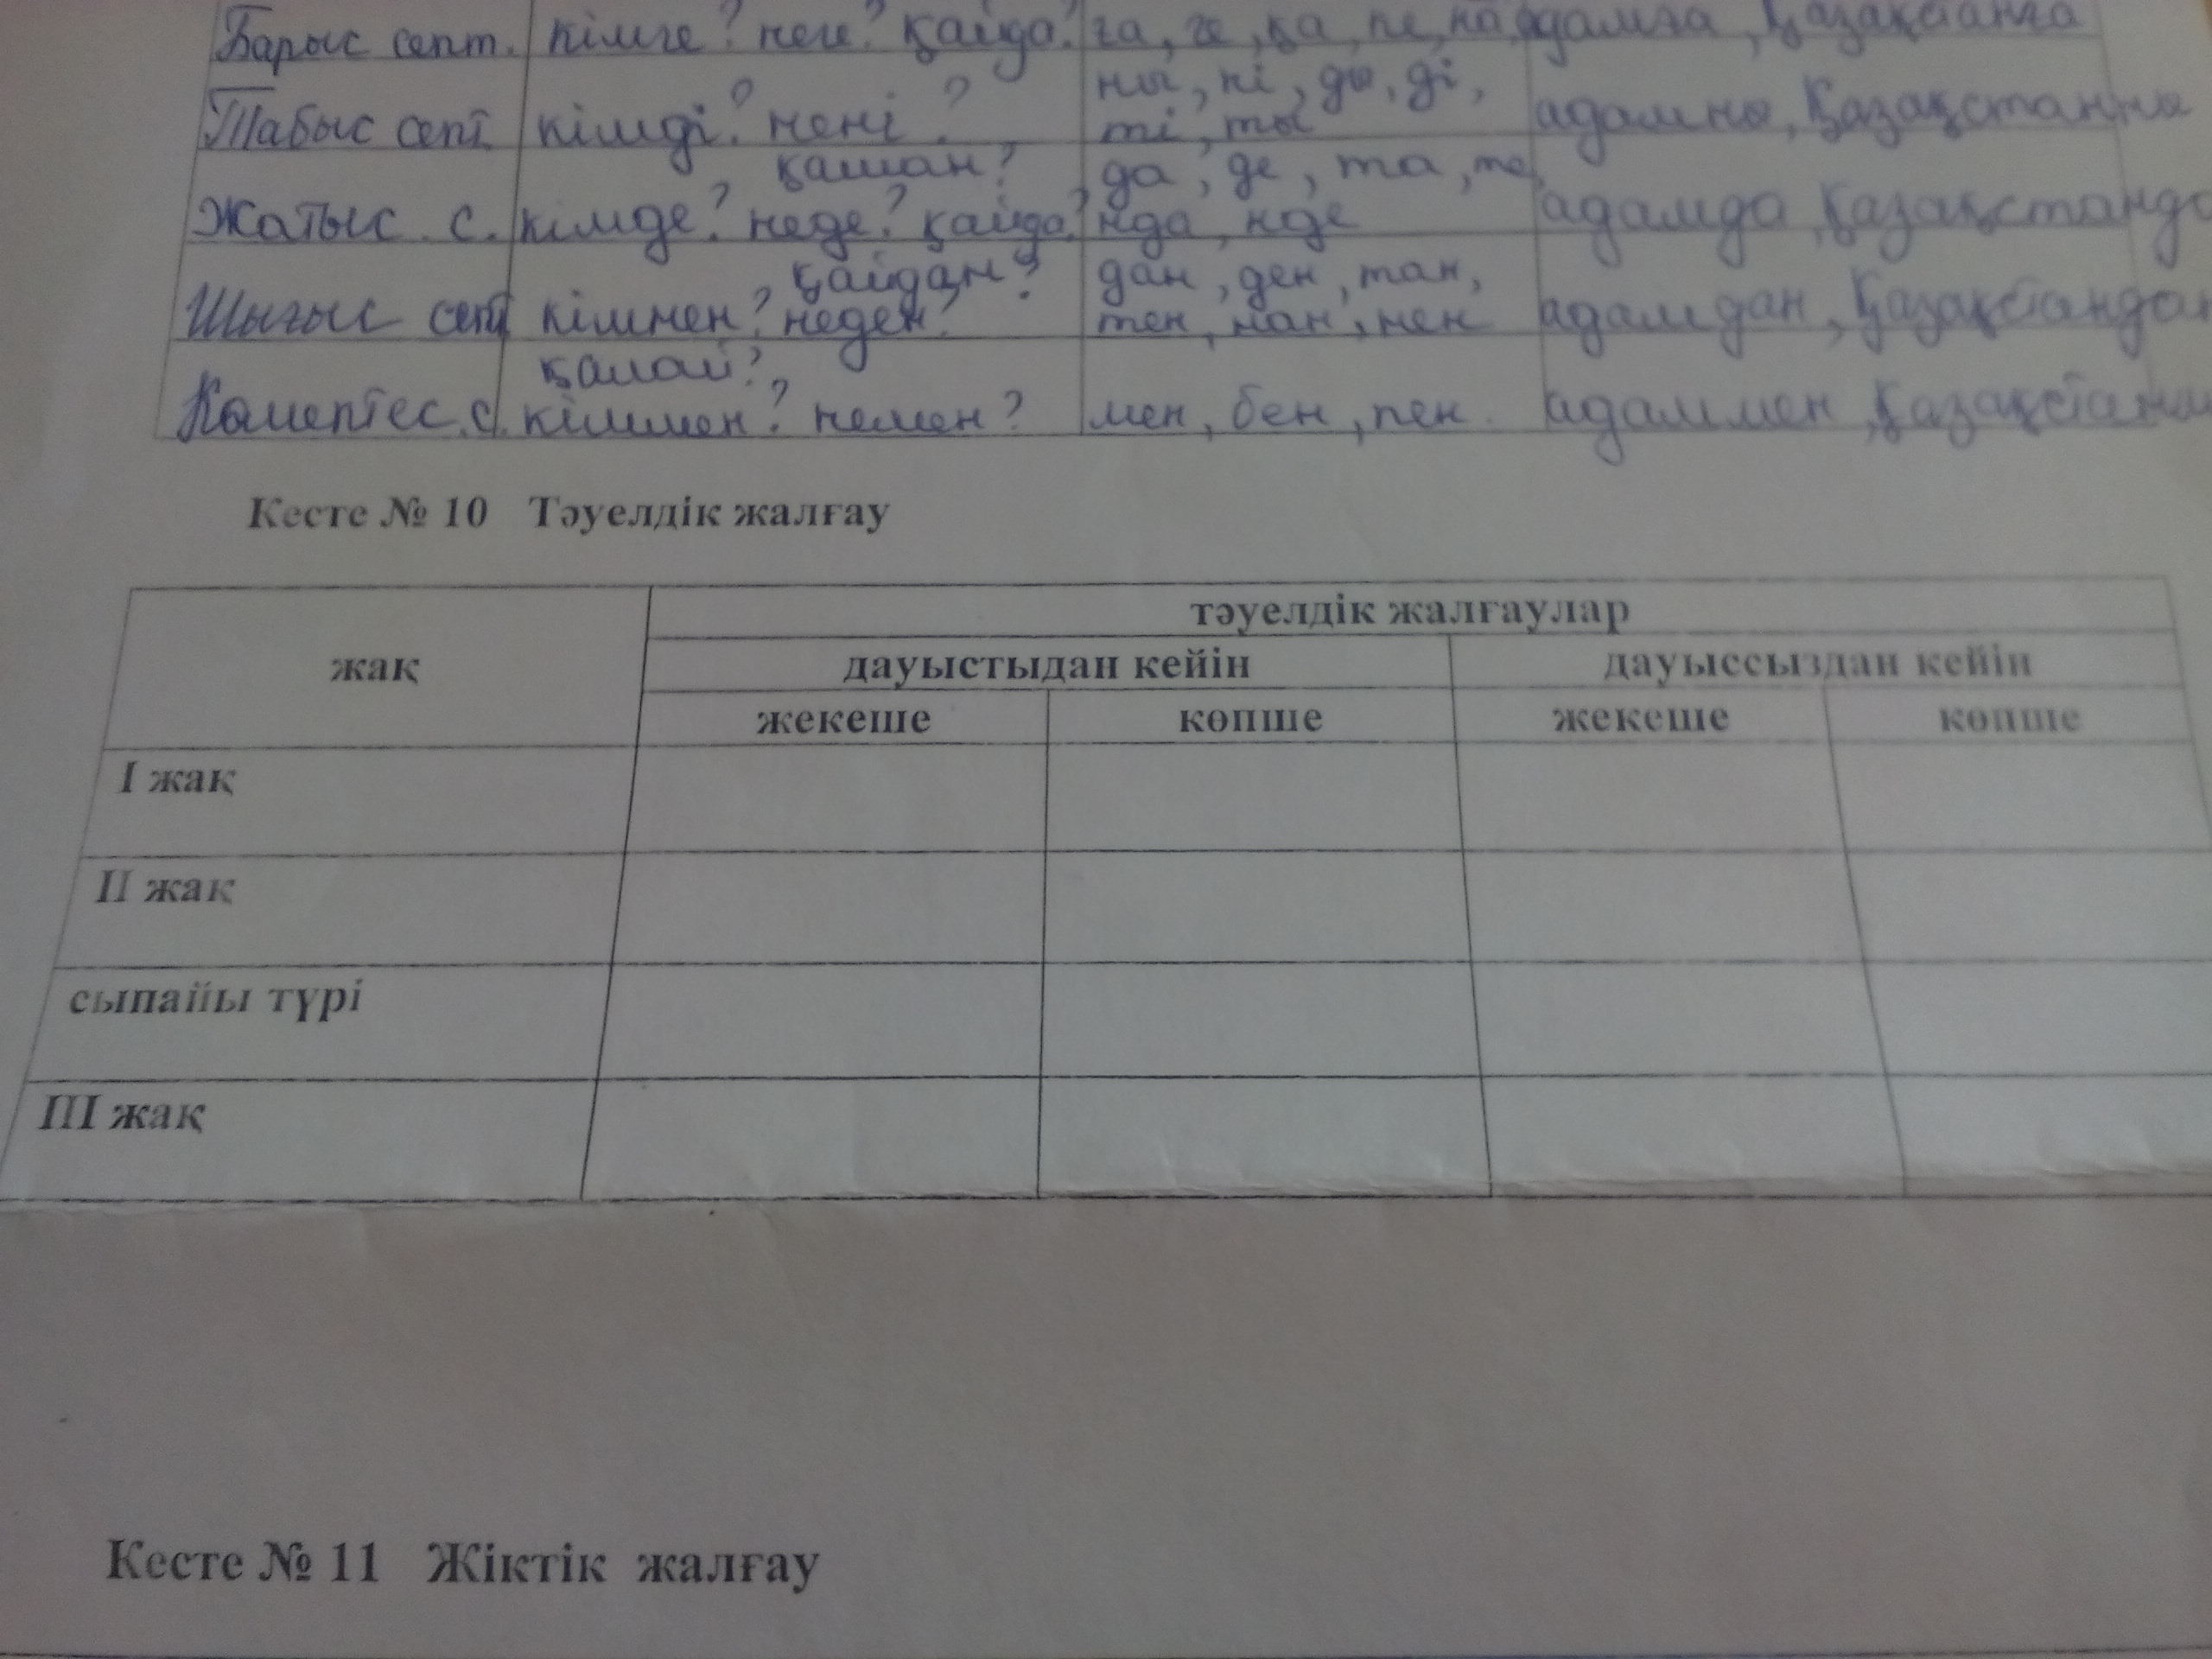 Барыс септ. кімге? неге? қайда? ға, ге, қа, ке, на, адамға, Қазақстанға
ны, ні, ды, ді,
Табыс септ кімді? нені? ті, ты адамны, Қазақстанны
қашан? да, де, та, те,
Жатыс с. кімде? неде? қайда? нда, нде адамда, Қазақстанда
қайдан? дан, ден, тан,
Шығыс септ кімнен? неден? тен, нан, нен адамдан, Қазақстандан
қалай?
Көмектес с. кіммен? немен? мен, бен, пен. адаммен,
Кесте № 10 Тәуелдік жалғау
жақ тәуелдік жалғаулар
дауыстыдан кейін дауыссыздан кейін
жекеше көпше жекеше көпше
I жақ
II жақ
сыпайы түрі
III жақ
Кесте № 11 Жіктік жалғау